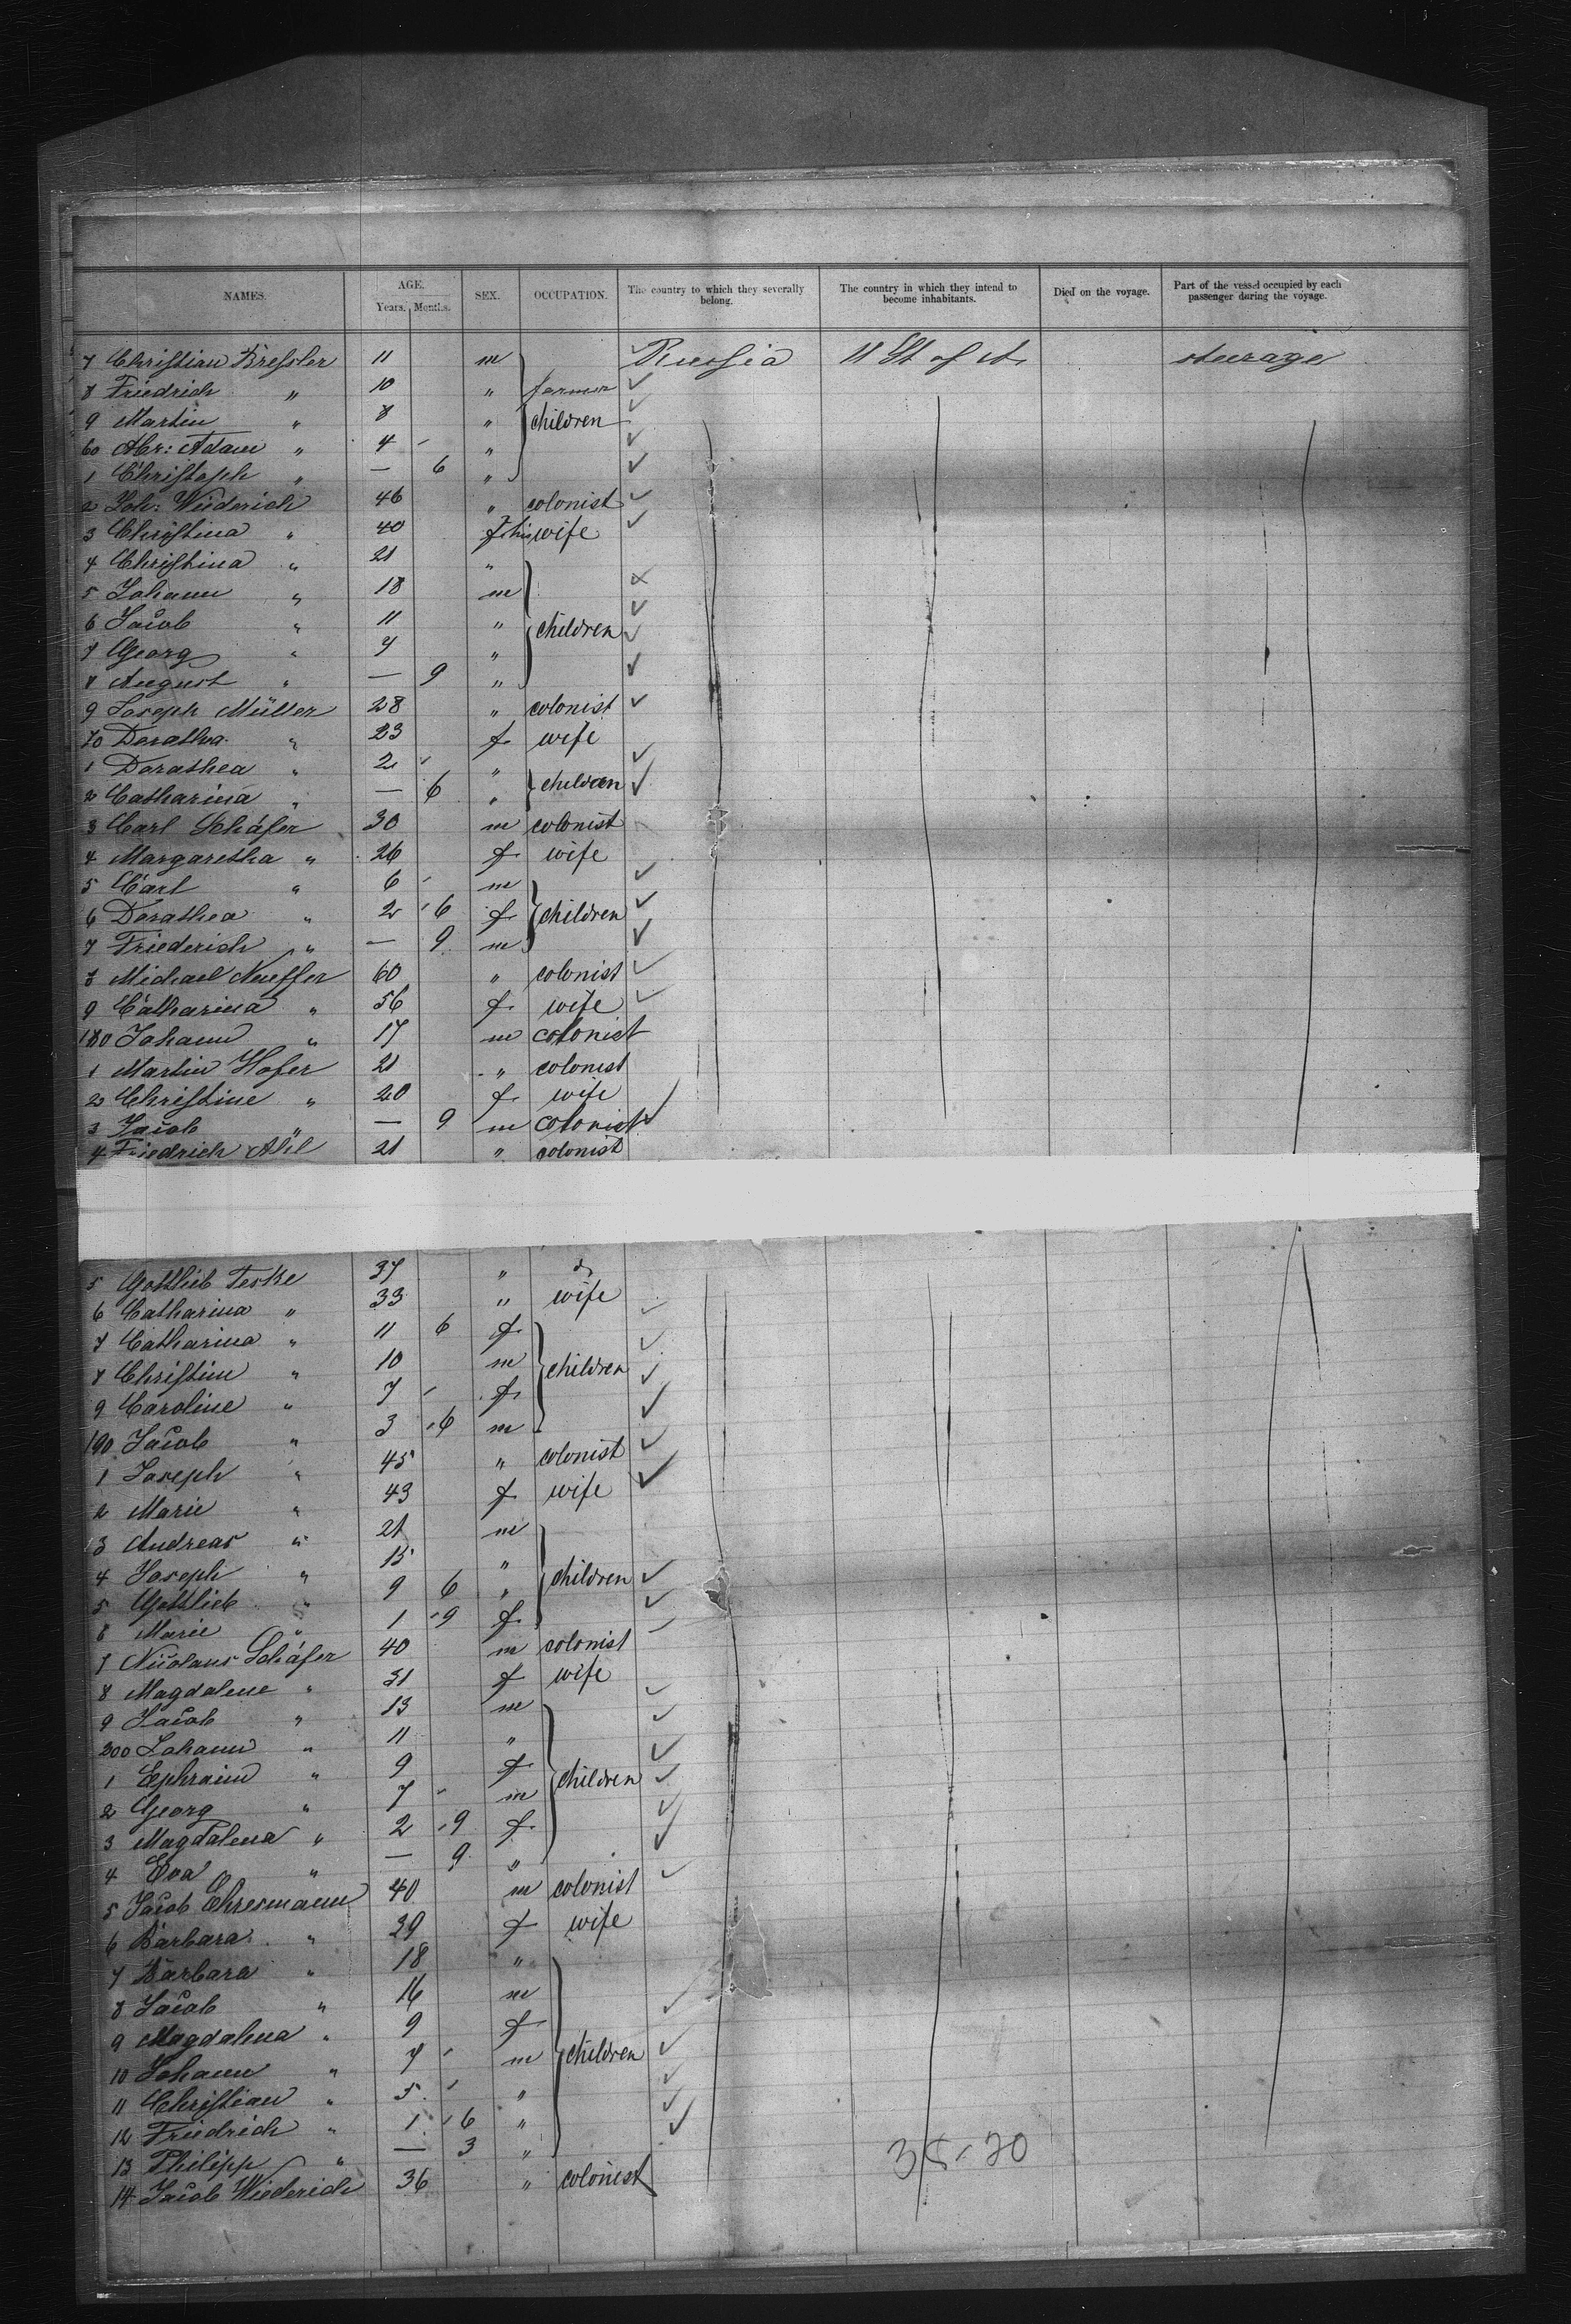 NAMES. AGE. Years. Months. SEX. OCCUPATION. The country to which they severally belong. The country in which they intend to become inhabitants. Died on the voyage. Part of the vessel occupied by each passenger during the voyage.
7 Christian Bressler 11 m Russia U St of A steerage
8 Friedrich " 10 " farmer
9 Martin " 8 " children
60 Chr: Adam " 4 "
1 Christoph " — 6 "
2 Joh: Wiederich 46 " colonist
3 Christina " 40 f his wife
4 Christina " 21 "
5 Johann " 18 m
6 Jacob " 11 " children
7 Georg " 7 "
8 August " — 9 "
9 Joseph Müller 28 " colonist
70 Dorathea " 23 f wife
1 Dorathea " 2 "
2 Catharina " — 6 " children
3 Carl Schäfer 30 m colonist
4 Margaretha " 26 f wife
5 Carl " 6 m
6 Dorathea " 2 6 f children
7 Friederich " — 9 m
8 Michael Neuffer 60 " colonist
9 Catharina " 56 f wife
180 Johann " 17 m colonist
1 Martin Hofer 21 " colonist
2 Christine " 20 f wife
3 Jacob " — 9 m colonist
4 Friedrich Ahl 21 " colonist
5 Gottlieb Teske 37 " do
6 Catharina " 33 " wife
7 Catharina " 11 6 f
8 Christian " 10 m children
9 Caroline " 7 f
190 Jacob " 3 6 m
1 Joseph " 45 " colonist
2 Marie " 43 f wife
3 Andreas " 21 m
4 Joseph " 15 "
5 Gottlieb " 9 6 " children
6 Marie " 1 9 f
7 Nicolaus Schäfer 40 m colonist
8 Magdalene " 31 f wife
9 Jacob " 13 m
200 Johann " 11 "
1 Ephraim " 9 f children
2 Georg " 7 m
3 Magdalena " 2 9 f
4 Eva " — 9 "
5 Jacob Ehresmann 40 m colonist
6 Barbara " 39 f wife
7 Barbara " 18 "
8 Jacob " 16 m
9 Magdalena " 9 f
10 Johann " 7 m children
11 Christian " 5 "
12 Friedrich " 1 6 "
13 Philipp " — 3 "
14 Jacob Wiederich 36 " colonist